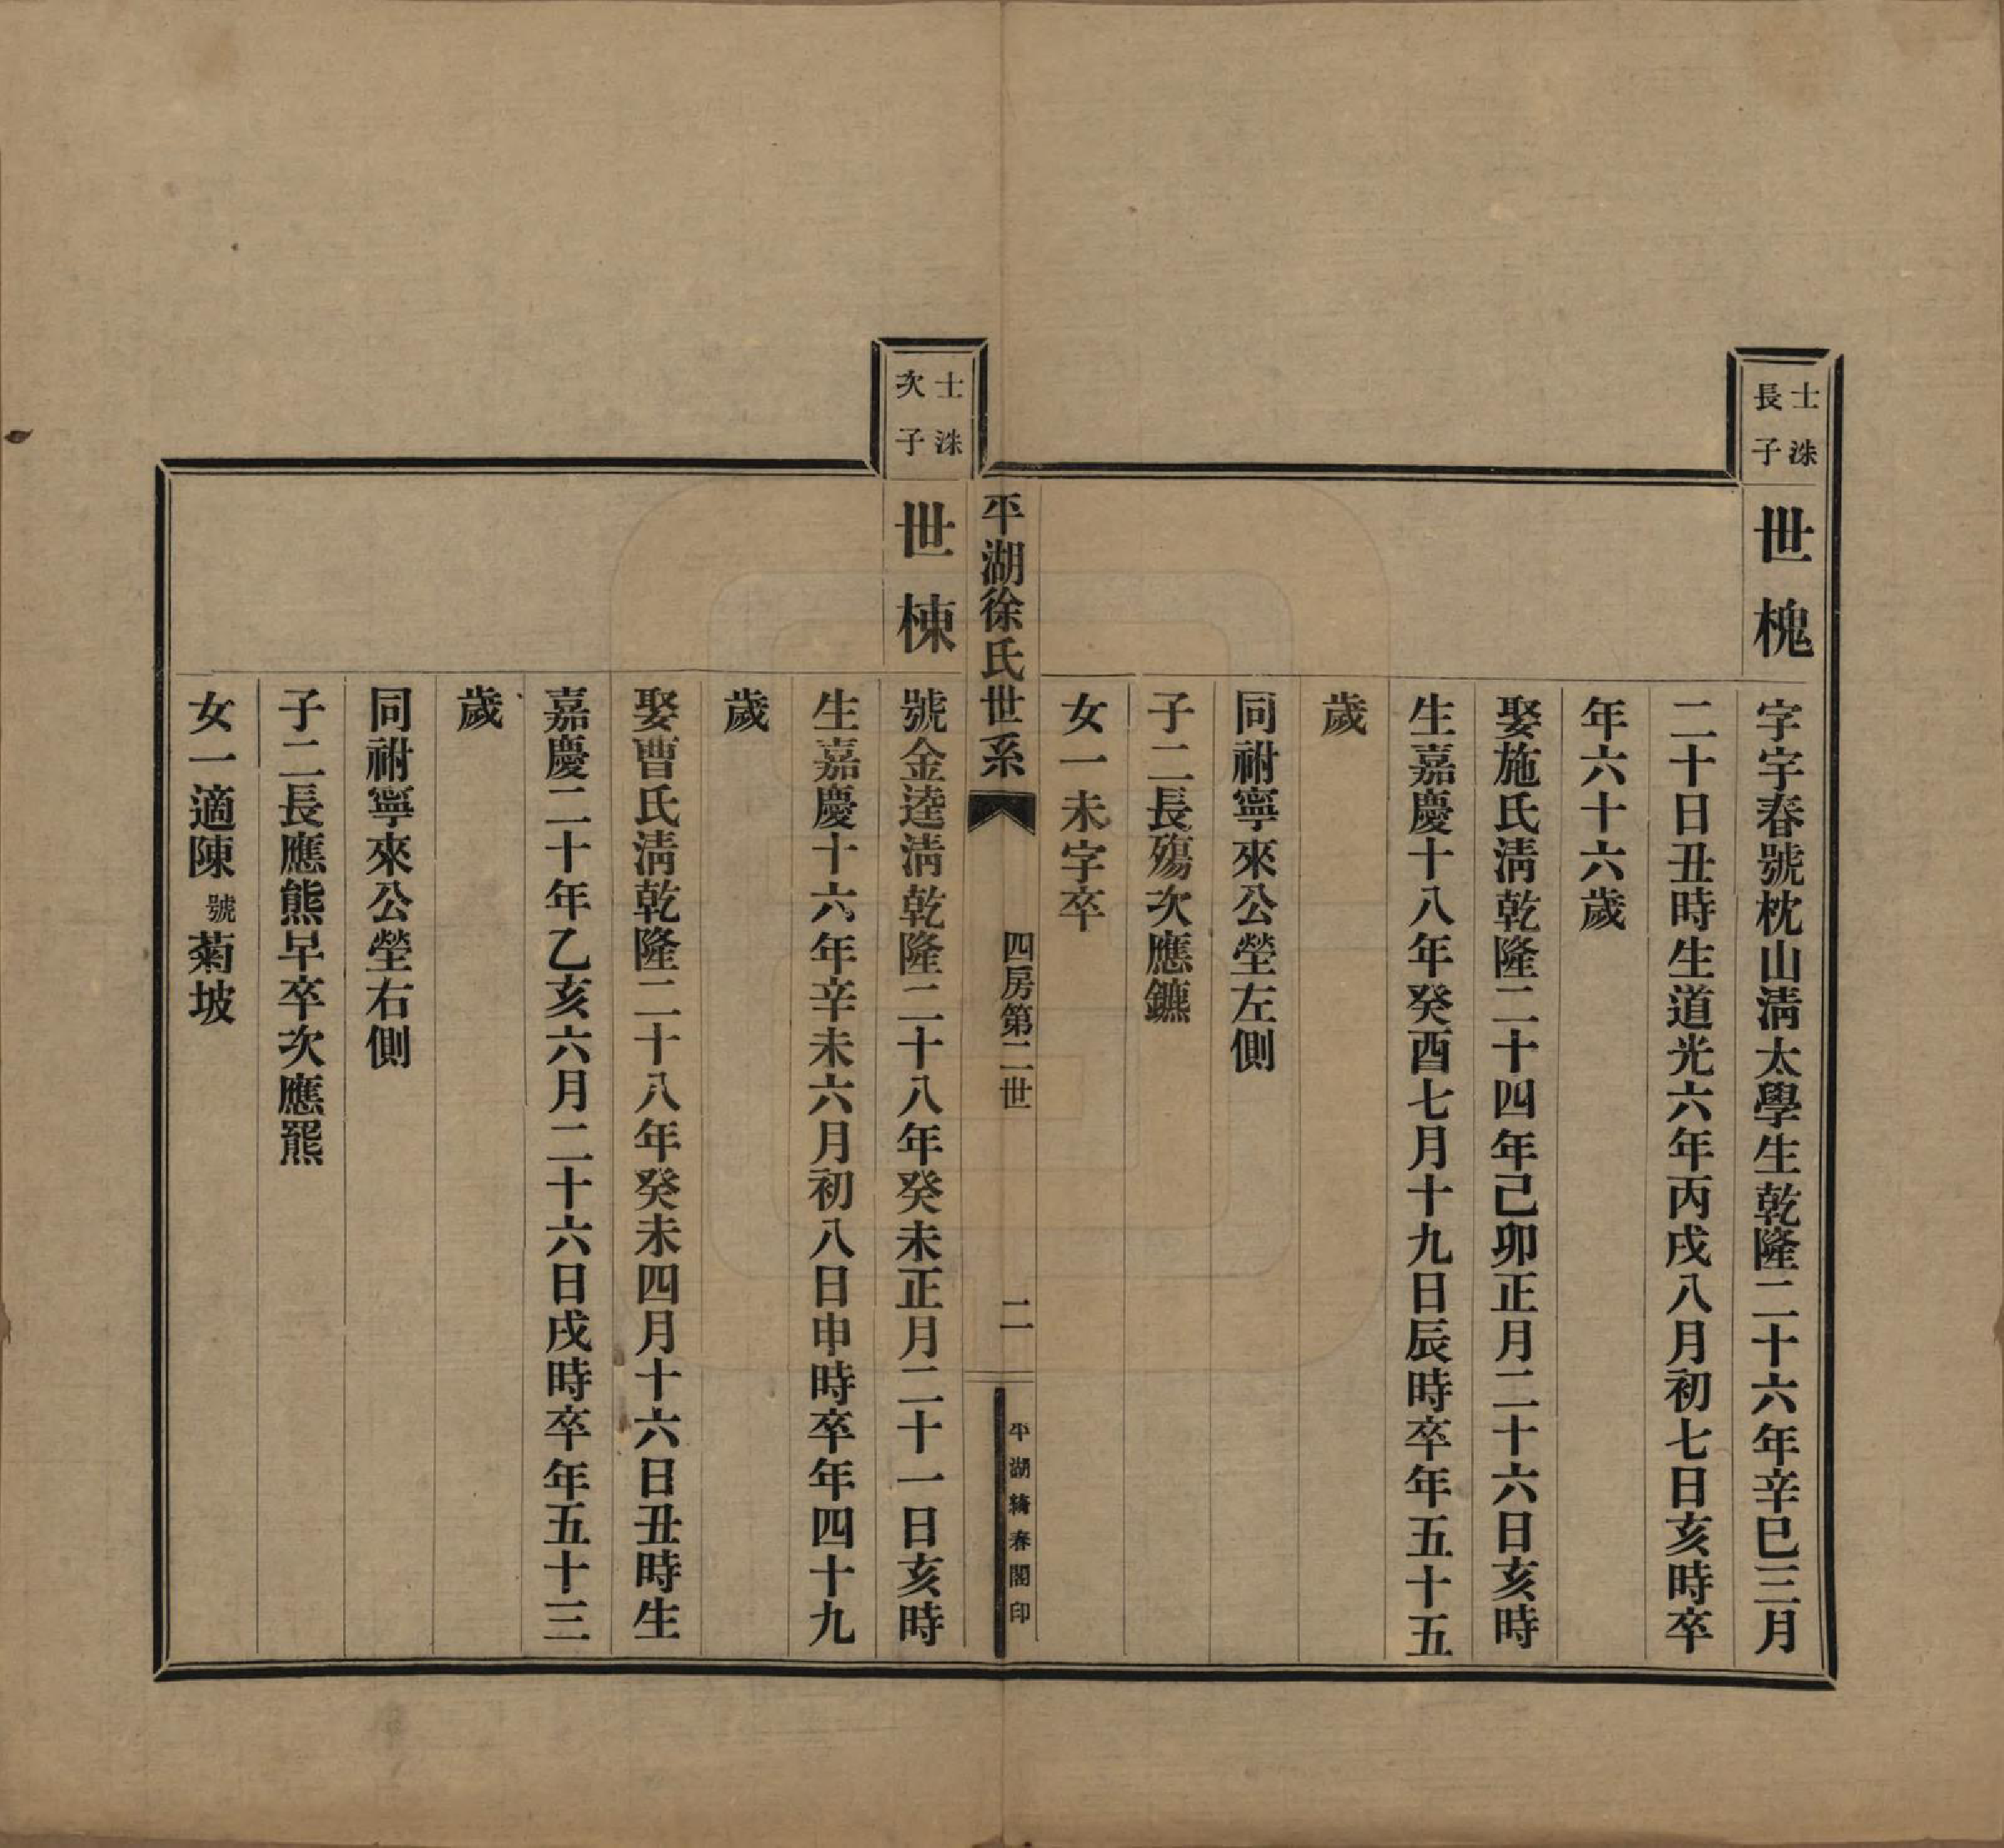 士洙
長子
世槐
字宇春號枕山淸太學生乾隆二十六年辛巳三月
二十日丑時生道光六年丙戌八月初七日亥時卒
年六十六歲
娶施氏淸乾隆二十四年己卯正月二十六日亥時
生嘉慶十八年癸酉七月十九日辰時卒年五十五
歲
同祔寧來公塋左側
子二長殤次應鑣
女一未字卒
平湖徐氏世系
四房第二世
二
平湖綺春閣印
士洙
次子
世棟
號金逵淸乾隆二十八年癸未正月二十一日亥時
生嘉慶十六年辛未六月初八日申時卒年四十九
歲
娶曹氏淸乾隆二十八年癸未四月十六日丑時生
嘉慶二十年乙亥六月二十六日戌時卒年五十三
歲
同祔寧來公塋右側
子二長應熊早卒次應羆
女一適陳號菊坡